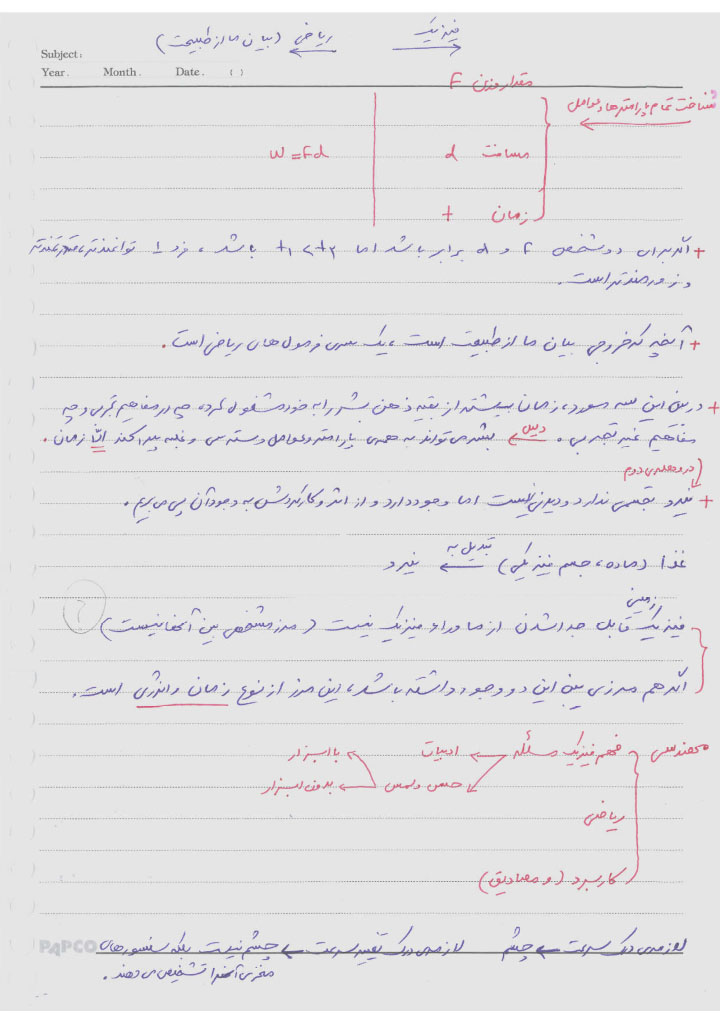 فیزیک → ریاضی ← (بیان ما از طبیعت)
Subject:
Year. Month. Date. ( )
مقدار وزن F
شناخت تمام پارامترها و عوامل ←
مسافت d W = Fd
زمان t
+ اگر برای دو شخص F و d برابر باشد اما t۱ < t۲ باشد، فرد ۱ توانمندتر،
و زورمندتر است.
+ آنچه که خروجی بیان ما از طبیعت است، یک سری فرمول های ریاضی است.
+ در بین این سه مورد، زمان بیشتر از بقیه ذهن بشر را به خود مشغول کرده، چه در مفاهیم تجربی و چه
مفاهیم غیر تجربی. دلیل ← بشر می تواند به همه ی پارامتر و عوامل دسترسی و غلبه پیدا کند الّا زمان.
در وهله ی دوم
+ نیرو تجسمی ندارد و دیدنی نیست اما وجود دارد و از اثر و کارکردش به وجود آن پی می بریم.
غذا (ماده، جسم فیزیکی) تبدیل به ← نیرو
زمینی
فیزیک قابل جدا شدن از ماوراء فیزیک نیست (مرز مشخصی بین آنها نیست) ؟
اگر هم مرزی بین این دو وجود داشته باشد، این مرز از نوع زمان و انرژی است.
مهندسی فهم فیزیک مسئله ← ادبیات با ابزار
حس و لمس ← بدون ابزار
ریاضی
کاربرد (و مصادیق)
لازمه ی درک سرعت ← چشم لازمه ی درک تغییر سرعت ← چشم نیست بلکه سنسورهای
مغزی آنرا تشخیص می دهند.
PAPCO